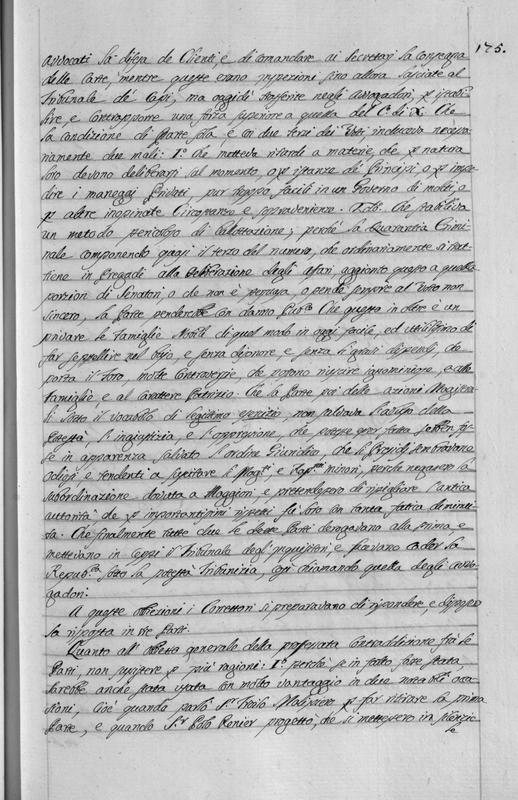 175.
Avvocati la difesa de Clienti, e di comandare ai Secretarj la consegna
delle Carte, mentre queste erano inspezioni fino allora lasciate al
Tribunale de' Capi, ma oggidì trasferite negli Avvogadori,
e contrapporre una forza superiore a quella del C. di X. Che
la condizione di Parte sola, e con due terzi dei Voti induceva necessa
riamente due mali: 1.º che metteva ritardi a materie, che p natura
loro devono deliberarsi sul momento, o p istanze de' Principi, o p impe
dire i maneggi privati, pur troppo facili in un Governo di molti, o
p altre inopinate Circonstanze e sopravenienze. 2.do Che stabiliva
un metodo pericoloso di ballottazione; perchè la Quarantia Crimi
nale componendo quasi il terzo del numero, che ordinariamente si trat
tiene in Pregadi alla deliberazione degli affari aggionto questo a qualche
porzion di Senatori, o che non è persuasa, o pende sempre al Voto non
sincero, la Parte penderebbe con danno Pub.co Che questa in oltre è un
privare le famiglie Nobili di quel modo in oggi facile, ed utilissimo di
far seppellire nel bujo, e senza disonore e senza li gravi dispendj, che
porta il Foro, molte Controversie, che potono riuscire ignominiose, e alle
famiglie e al Carattere Patrizio. Che la Parte poi delle azioni Magistra
li sotto il vocabolo di legittimo esercizio, non salvava l'abuso della
Potestà l'ingiustizia e l'oppressione, che potesse esser fatta
se in apparenza salvato l'ordine Giuridico, che li Proposti sembravano
odiosi e tendenti a suscitare li Mag.ti e minori, perchè negassero la
subordinazione dovuta a Maggiori, e pretendessero di ripigliare l'antica
autorità che p importantissimi rispetti fu loro con tanta fatica diminui
ta. Che finalmente tutte due le dette Parti derogavano alla prima, e
mettevano in ceppi il Tribunale degl'Inquisitori, e facevano cader la
Repub.ca sotto la potestà Tribunizia, così chiamando quella degli Avvo
gadori:
A queste obbiezioni i Correttori si preparavano di rispondere, e disposero
la risposta in tre Parti.
Quanto all'obbietto generale della professata Contraddizione fra le
Parti, non sussistere p più ragioni: 1.º perchè se in fatto fosse stata,
sarebbe anche stata usata con molto vantaggio in due notabili occa
sioni, cioè quando parlò S.r Malipiero p far ritirare la prima
Parte, e quando S.r Polo Renier progettò, che si mettessero in silenzio
le